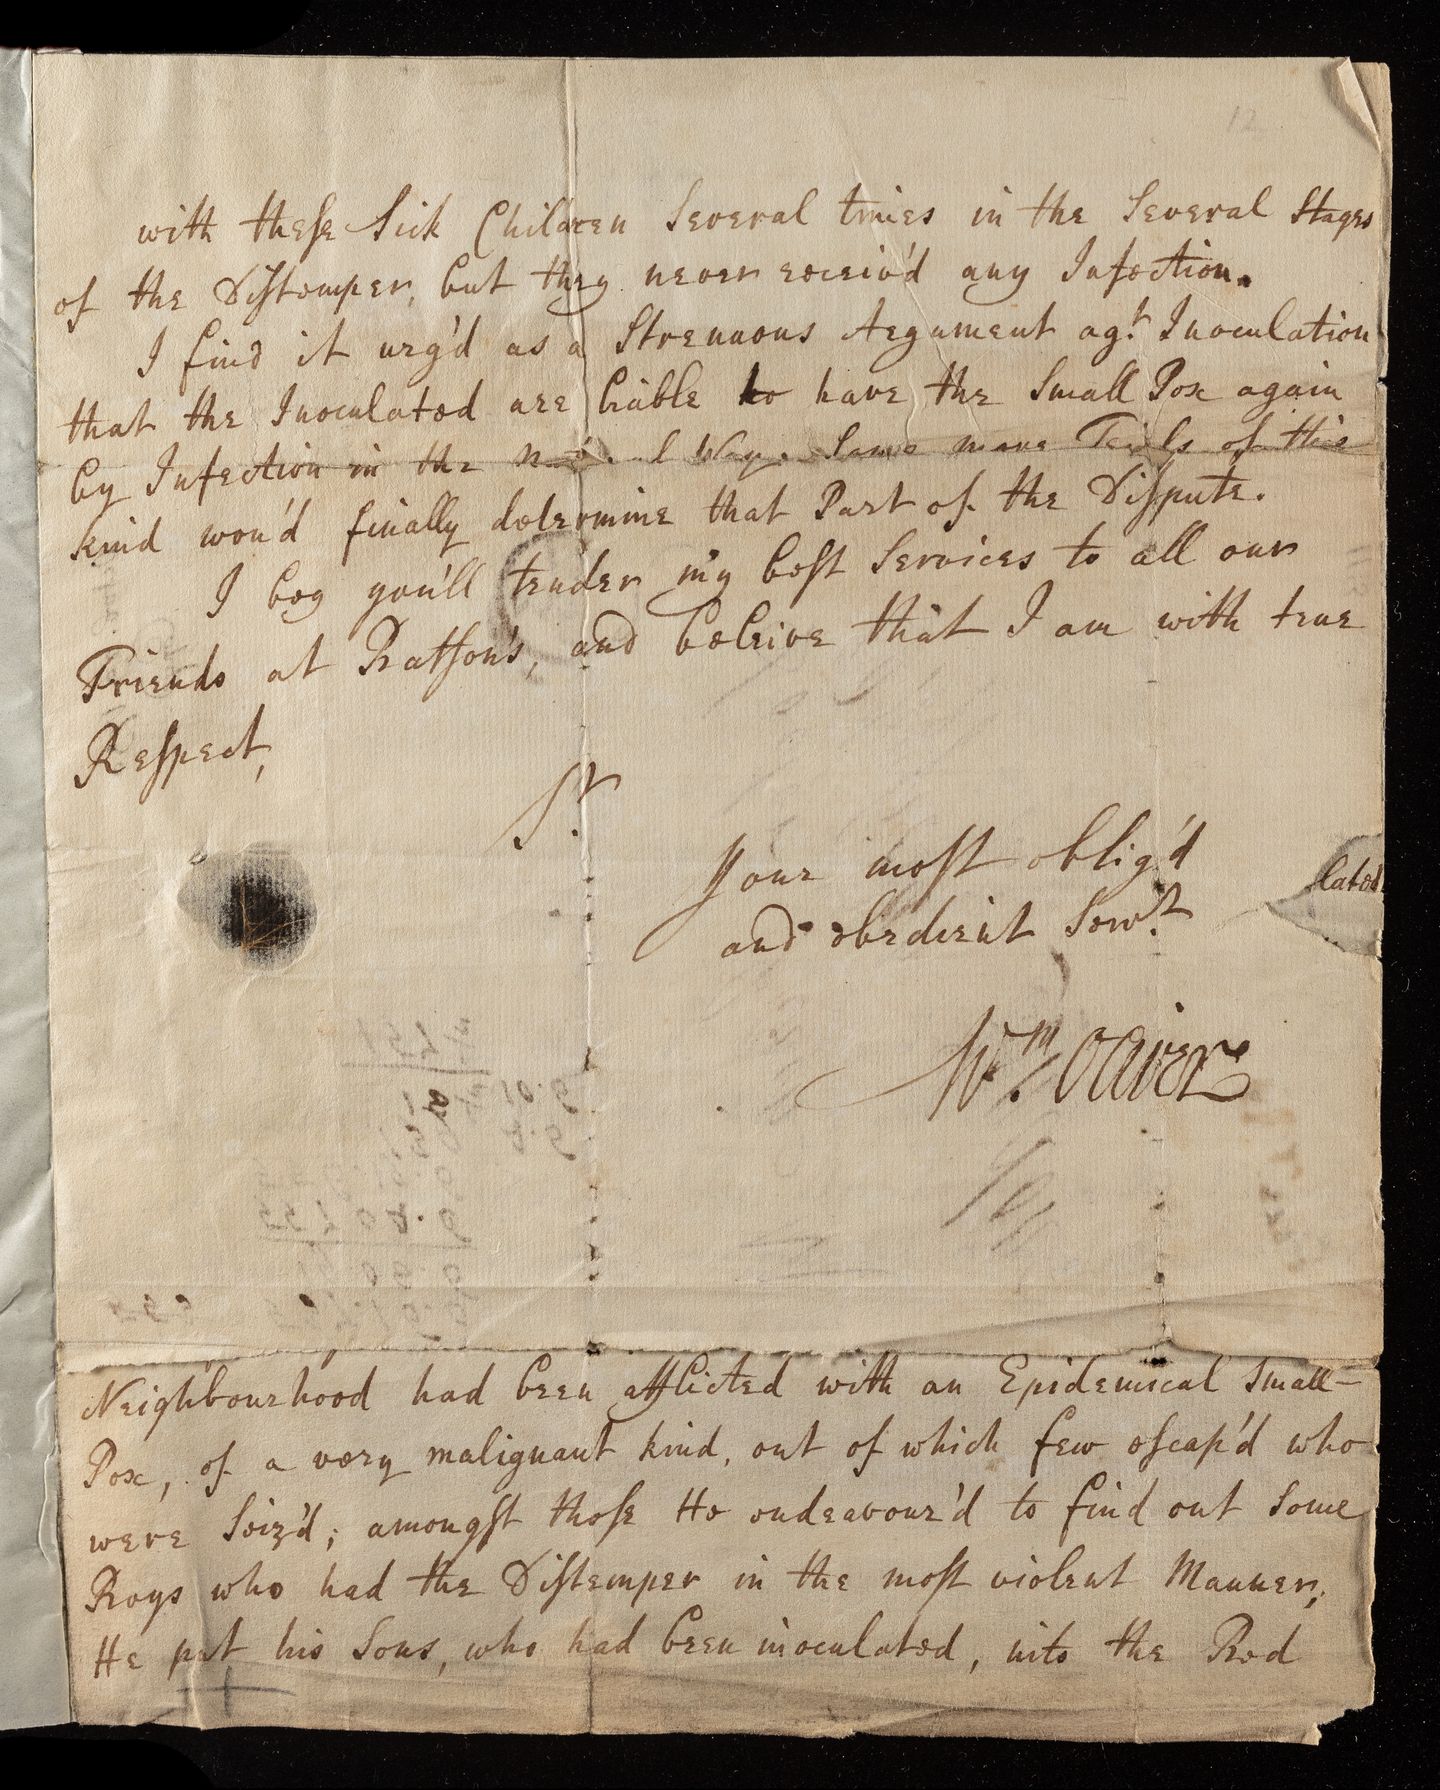 12
with these Sick Children Several times in the Several Stages
of the Distemper, but they never receiv'd any Infection.
I find it urg'd as a Strenuous Argument agt. Inoculation
that the Inoculated are liable to have the Small Pox again
by Infection in the Way. Some more of this
kind wou'd finally determine that Part of the Dispute.
I beg you'll tender my best Services to all our
Friends at and beleive that I am with true
Respect,
Sr.
Your most oblig'd
and obedient Servt.
lated
Wm. Oliver
Neighbourhood had been afflicted with an Epidemical Small-
Pox, of a very malignant kind, out of which few escap'd who
were Seiz'd; amongst those He endeavour'd to find out Some
Boys who had the Distemper in the most violent Manner,
He put his Sons, who had been inoculated, into the Bed